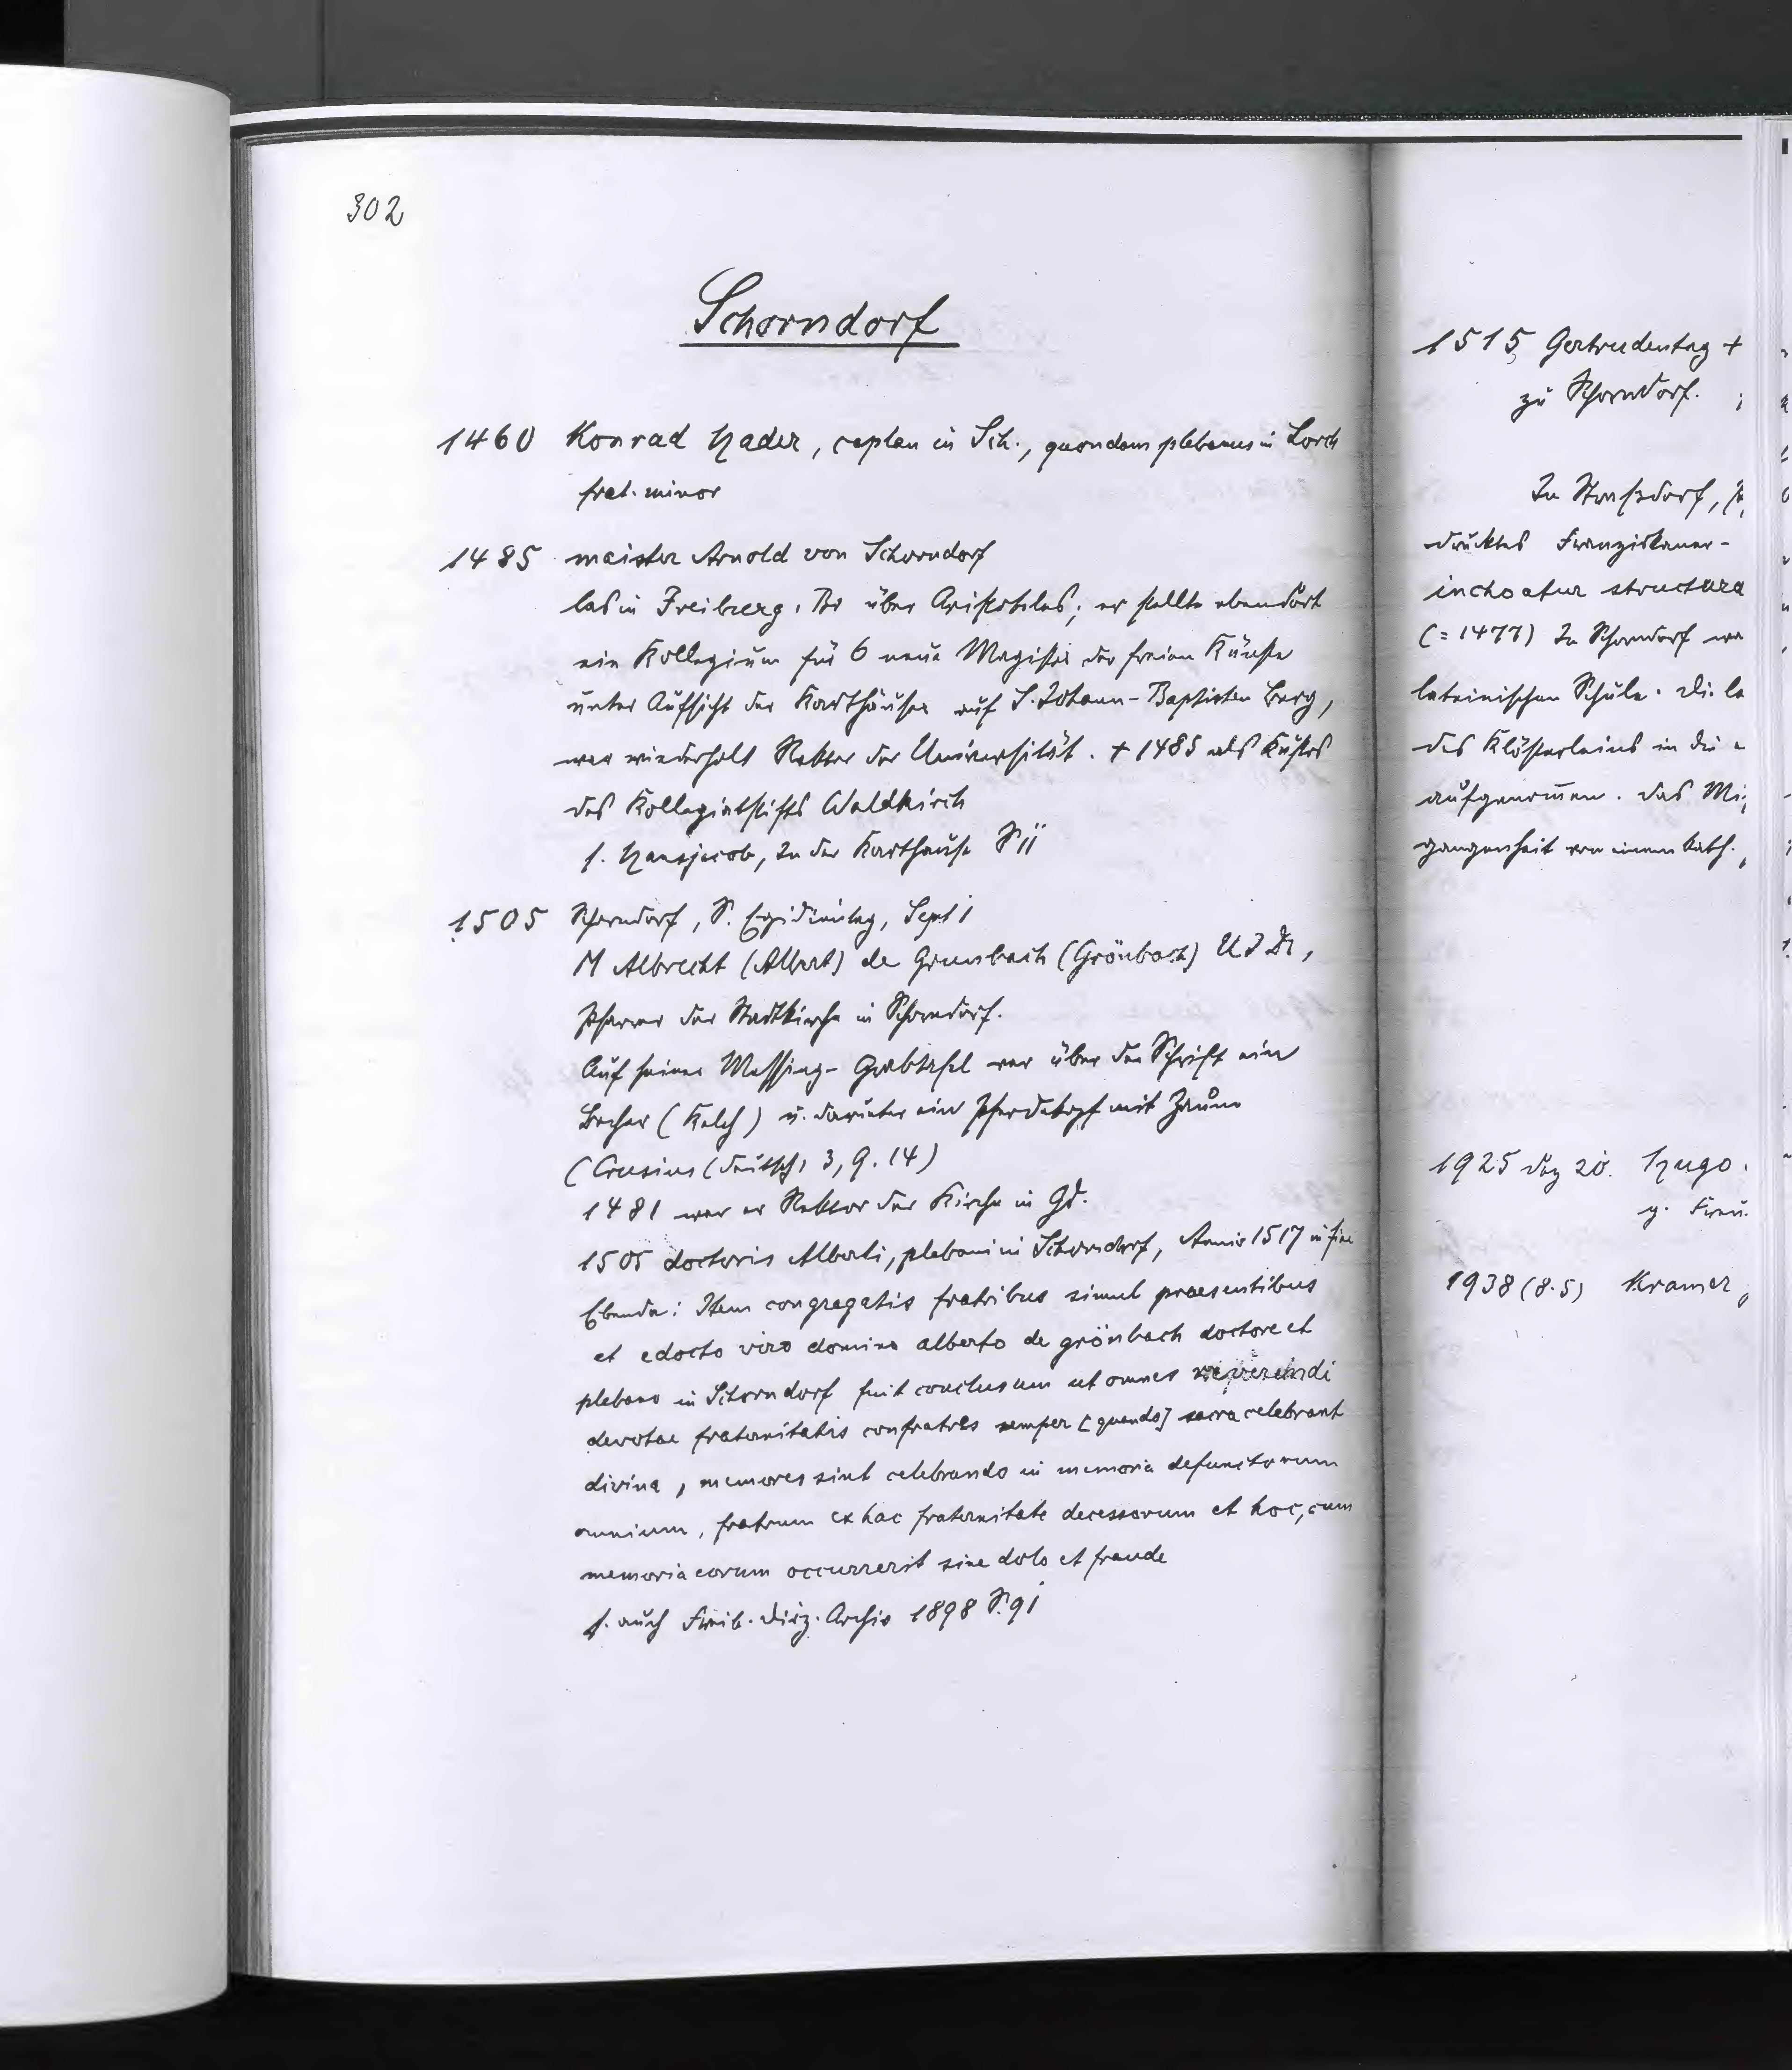 302
Schorndorf
1460 Konrad Hader, caplan in Sch., quondam plebanus in Lorch
frat. minor
1485 maister Arnold von Schorndorf
las in Freiburg i Br über Aristoteles; er stellte ebendort
ein Kollegium für 6 neue Magister der freien Künste
unter Aufsicht der Karthäuser auf S. Johann-Baptisten Berg,
war wiederholt Rektor der Universität. + 1485 als Kustos
des Kollegiatstifts Waldkirch
s. Hansjacob, In der Karthause S 11
1505 Schorndorf, S. Egidientag, Sept 1
M Albrecht (Albert) de Grunbach (Grönbach) U J Dr,
Pfarrer der Stadtkirche in Schorndorf.
Auf seiner Messing-Grabtafel war über der Schrift ein
Becher (Kelch) u. darunter ein Pferdekopf mit Zaum
(Crusius (deutsch) 3, 9. 14)
1481 war er Rektor der Kirche in Gd.
1505 doctoris Alberti, plebani in Schorndorf, Anniv 1517 in fine
Ebenda: Item congregatis fratribus simul praesentibus
et edocto viro domino alberto de grönbach doctore et
plebano in Schorndorf fuit conclusum ut omnes reverendi
devotae fraternitatis confratres semper [quando] sacra celebrant
divina, memores sint celebrando in memoria defunctorum
omnium, fratrum ex hac fraternitate decessorum et hoc, cum
memoria eorum occurrerit sine dolo et fraude
s. auch Freib. Diöz. Archiv 1898 S. 91
1515 Gertrudentag +
zu Schorndorf.
In Straßdorf,
drucktes Franziskaner-
inchoatur structura
(= 1477) In Schorndorf
lateinischen Schule. Die
des Klösterleins in die
aufgenommen. Das
gangenheit von einem kath.
1925 Dez 20. Hugo
g. Frau.
1938 (8.5) Kramer,